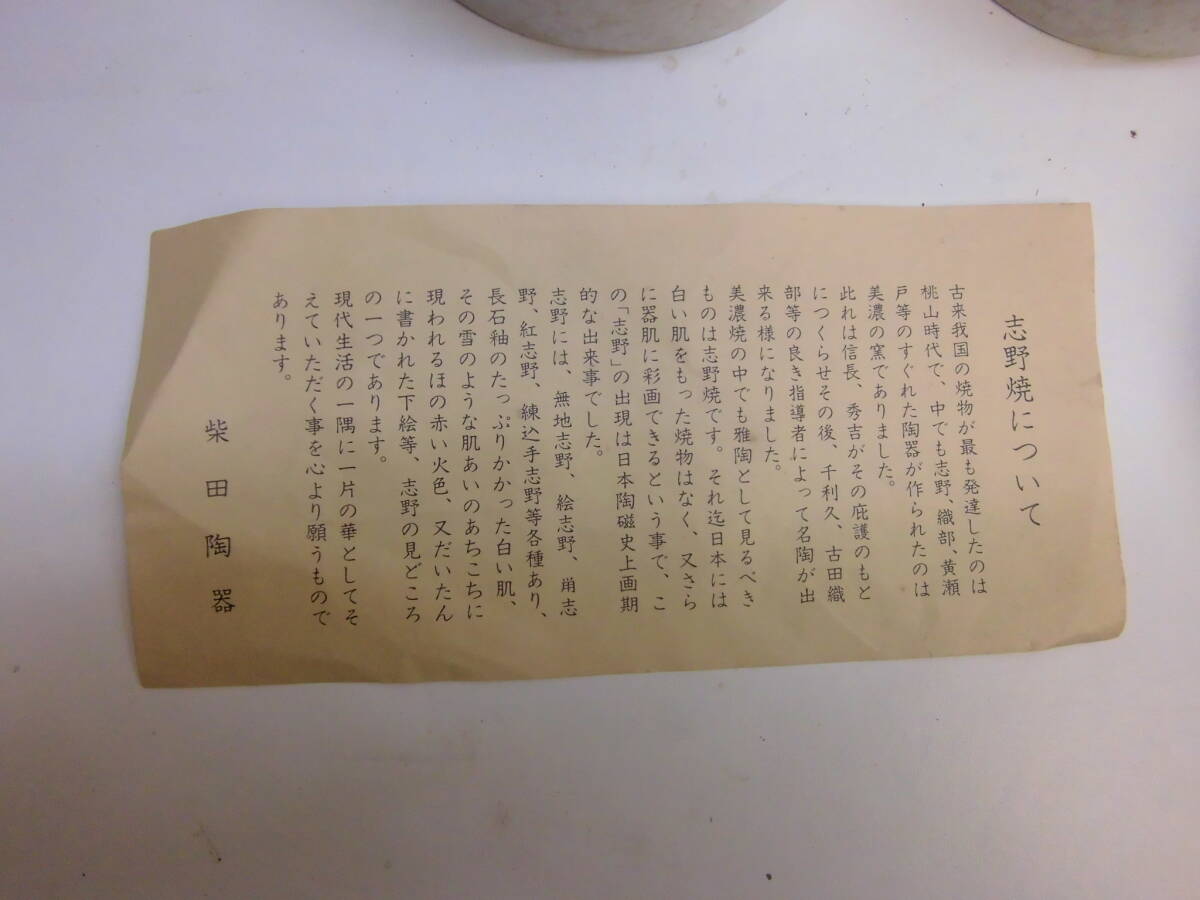 志野焼について
古来我国の焼物が最も発達したのは
桃山時代で、中でも志野、織部、黄瀬
戸等のすぐれた陶器が作られたのは
美濃の窯でありました。
此れは信長、秀吉がその庇護のもと
につくらせその後、千利久、古田織
部等の良き指導者によって名陶が出
来る様になりました。
美濃焼の中でも雅陶として見るべき
ものは志野焼です。それ迄日本には
白い肌をもった焼物はなく、又さら
に器肌に彩画できるという事で、こ
の「志野」の出現は日本陶磁史上画期
的な出来事でした。
志野には、無地志野、絵志野、鼡志
野、紅志野、練込手志野等各種あり、
長石釉のたっぷりかかった白い肌、
その雪のような肌あいのあちこちに
現われるほの赤い火色、又だいたん
に書かれた下絵等、志野の見どころ
の一つであります。
現代生活の一隅に一片の華としてそ
えていただく事を心より願うもので
あります。
柴田陶器